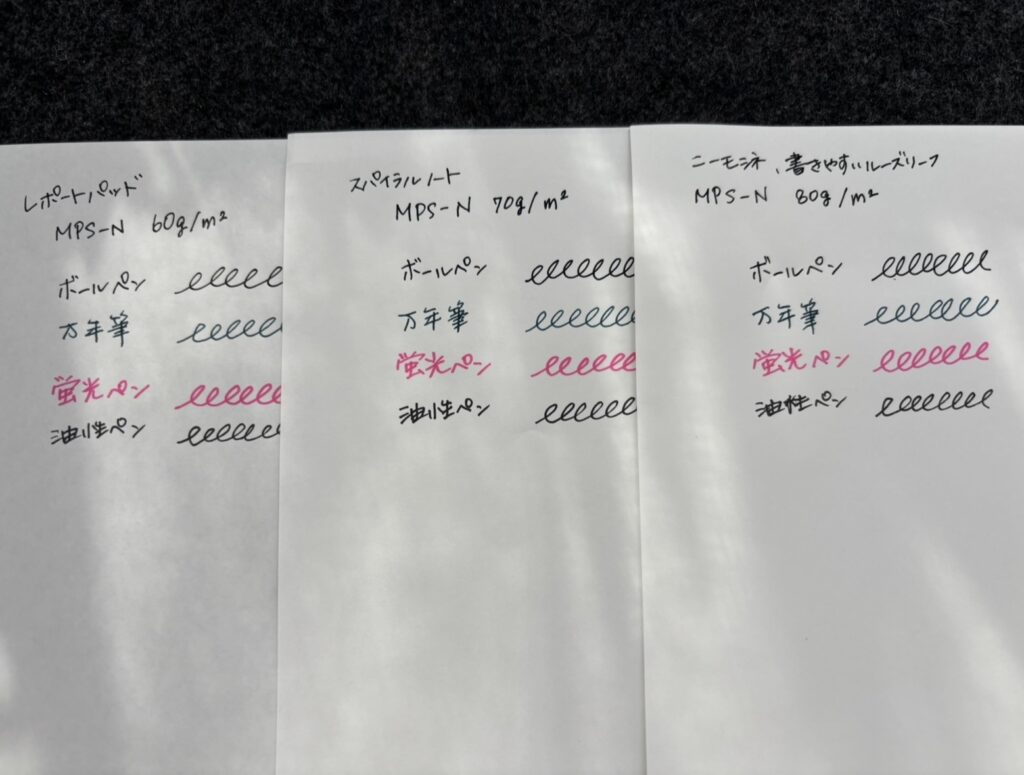 レポートパッド
MPS-N 60g/m²
ボールペン
万年筆
蛍光ペン
油性ペン
スパイラルノート
MPS-N 70g/m²
ボールペン
万年筆
蛍光ペン
油性ペン
ニーモシネ、書きやすいルーズリーフ
MPS-N 80g/m²
ボールペン
万年筆
蛍光ペン
油性ペン